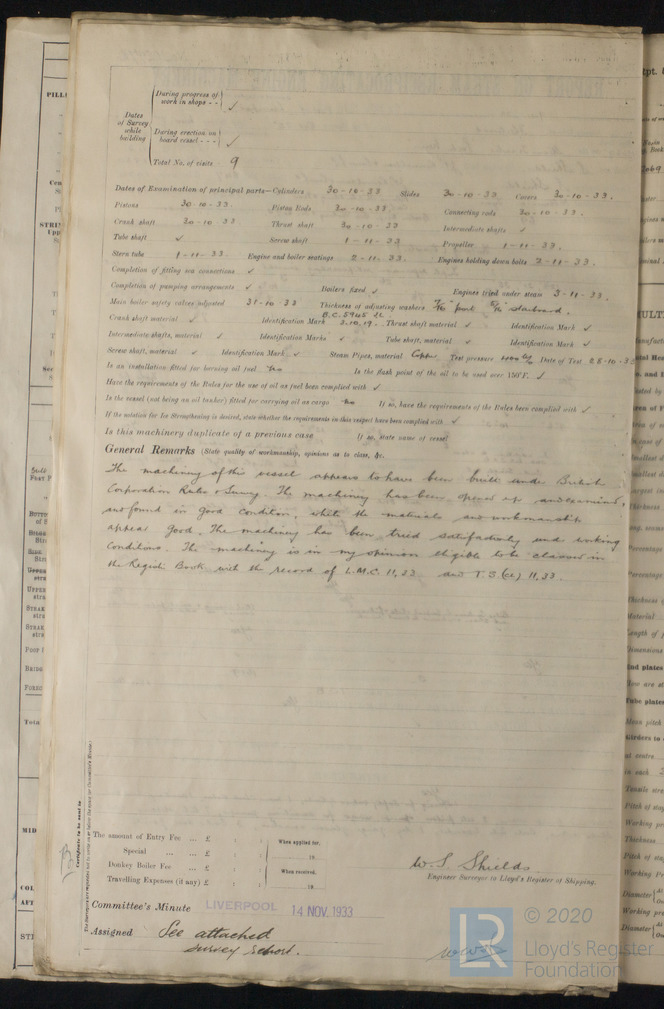 During progress of
work in shops - -  ✓
Dates
of Survey
while
building
During erection on
board vessel - - -  ✓
Total No. of visits  9
Dates of Examination of principal parts—Cylinders  30-10-33  Slides  30-10-33.  Covers  30-10-33.
Pistons  30-10-33.  Piston Rods  30-10-33.  Connecting rods  30-10-33.
Crank shaft  30-10-33  Thrust shaft  30-10-33.  Intermediate shafts  ✓
Tube shaft  ✓  Screw shaft  1-11-33.  Propeller  1-11-33.
Stern tube  1-11-33.  Engine and boiler seatings  2-11-33.  Engines holding down bolts  2-11-33.
Completion of fitting sea connections  ✓
Completion of pumping arrangements  ✓  Boilers fixed  ✓  Engines tried under steam  3-11-33.
Main boiler safety valves adjusted  31-10-33  Thickness of adjusting washers  port  Starboard.
Crank shaft material  ✓  Identification Mark  3.10.19.  Thrust shaft material  ✓  Identification Mark  ✓
Intermediate shafts, material  ✓  Identification Marks  ✓  Tube shaft, material  ✓  Identification Mark  ✓
Screw shaft, material  ✓  Identification Mark  ✓  Steam Pipes, material  Copper  Test pressure  Date of Test
Is an installation fitted for burning oil fuel  no  Is the flash point of the oil to be used over 150°F.  ✓
Have the requirements of the Rules for the use of oil as fuel been complied with  ✓
Is the vessel (not being an oil tanker) fitted for carrying oil as cargo  no  If so, have the requirements of the Rules been complied with  ✓
If the notation for Ice Strengthening is desired, state whether the requirements in this respect have been complied with  ✓
Is this machinery duplicate of a previous case  If so, state name of vessel
General Remarks (State quality of workmanship, opinions as to class, &c.
The machinery of this vessel appears to have been built under British
Corporation Rules & Survey. The machinery has been opened up and examined,
and found in good condition, while the materials and workmanship
appear good. The machinery has been tried satisfactorily under working
conditions. The machinery is in my opinion eligible to be classed in
the Register Book with the record of L.M.C. 11,33 and T.S (CL) 11,33.
Certificate to be sent to
The amount of Entry Fee ... £
When applied for,
Special ... ... £
19
Donkey Boiler Fee ... £
When received,
Travelling Expenses (if any) £
19
W.S. Shields
Engineer Surveyor to Lloyd's Register of Shipping.
Committee's Minute  LIVERPOOL  14 NOV. 1933
Assigned  See attached
survey report.
LR
© 2020
Lloyd's Register
Foundation